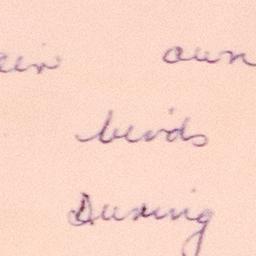 eir own
birds
During